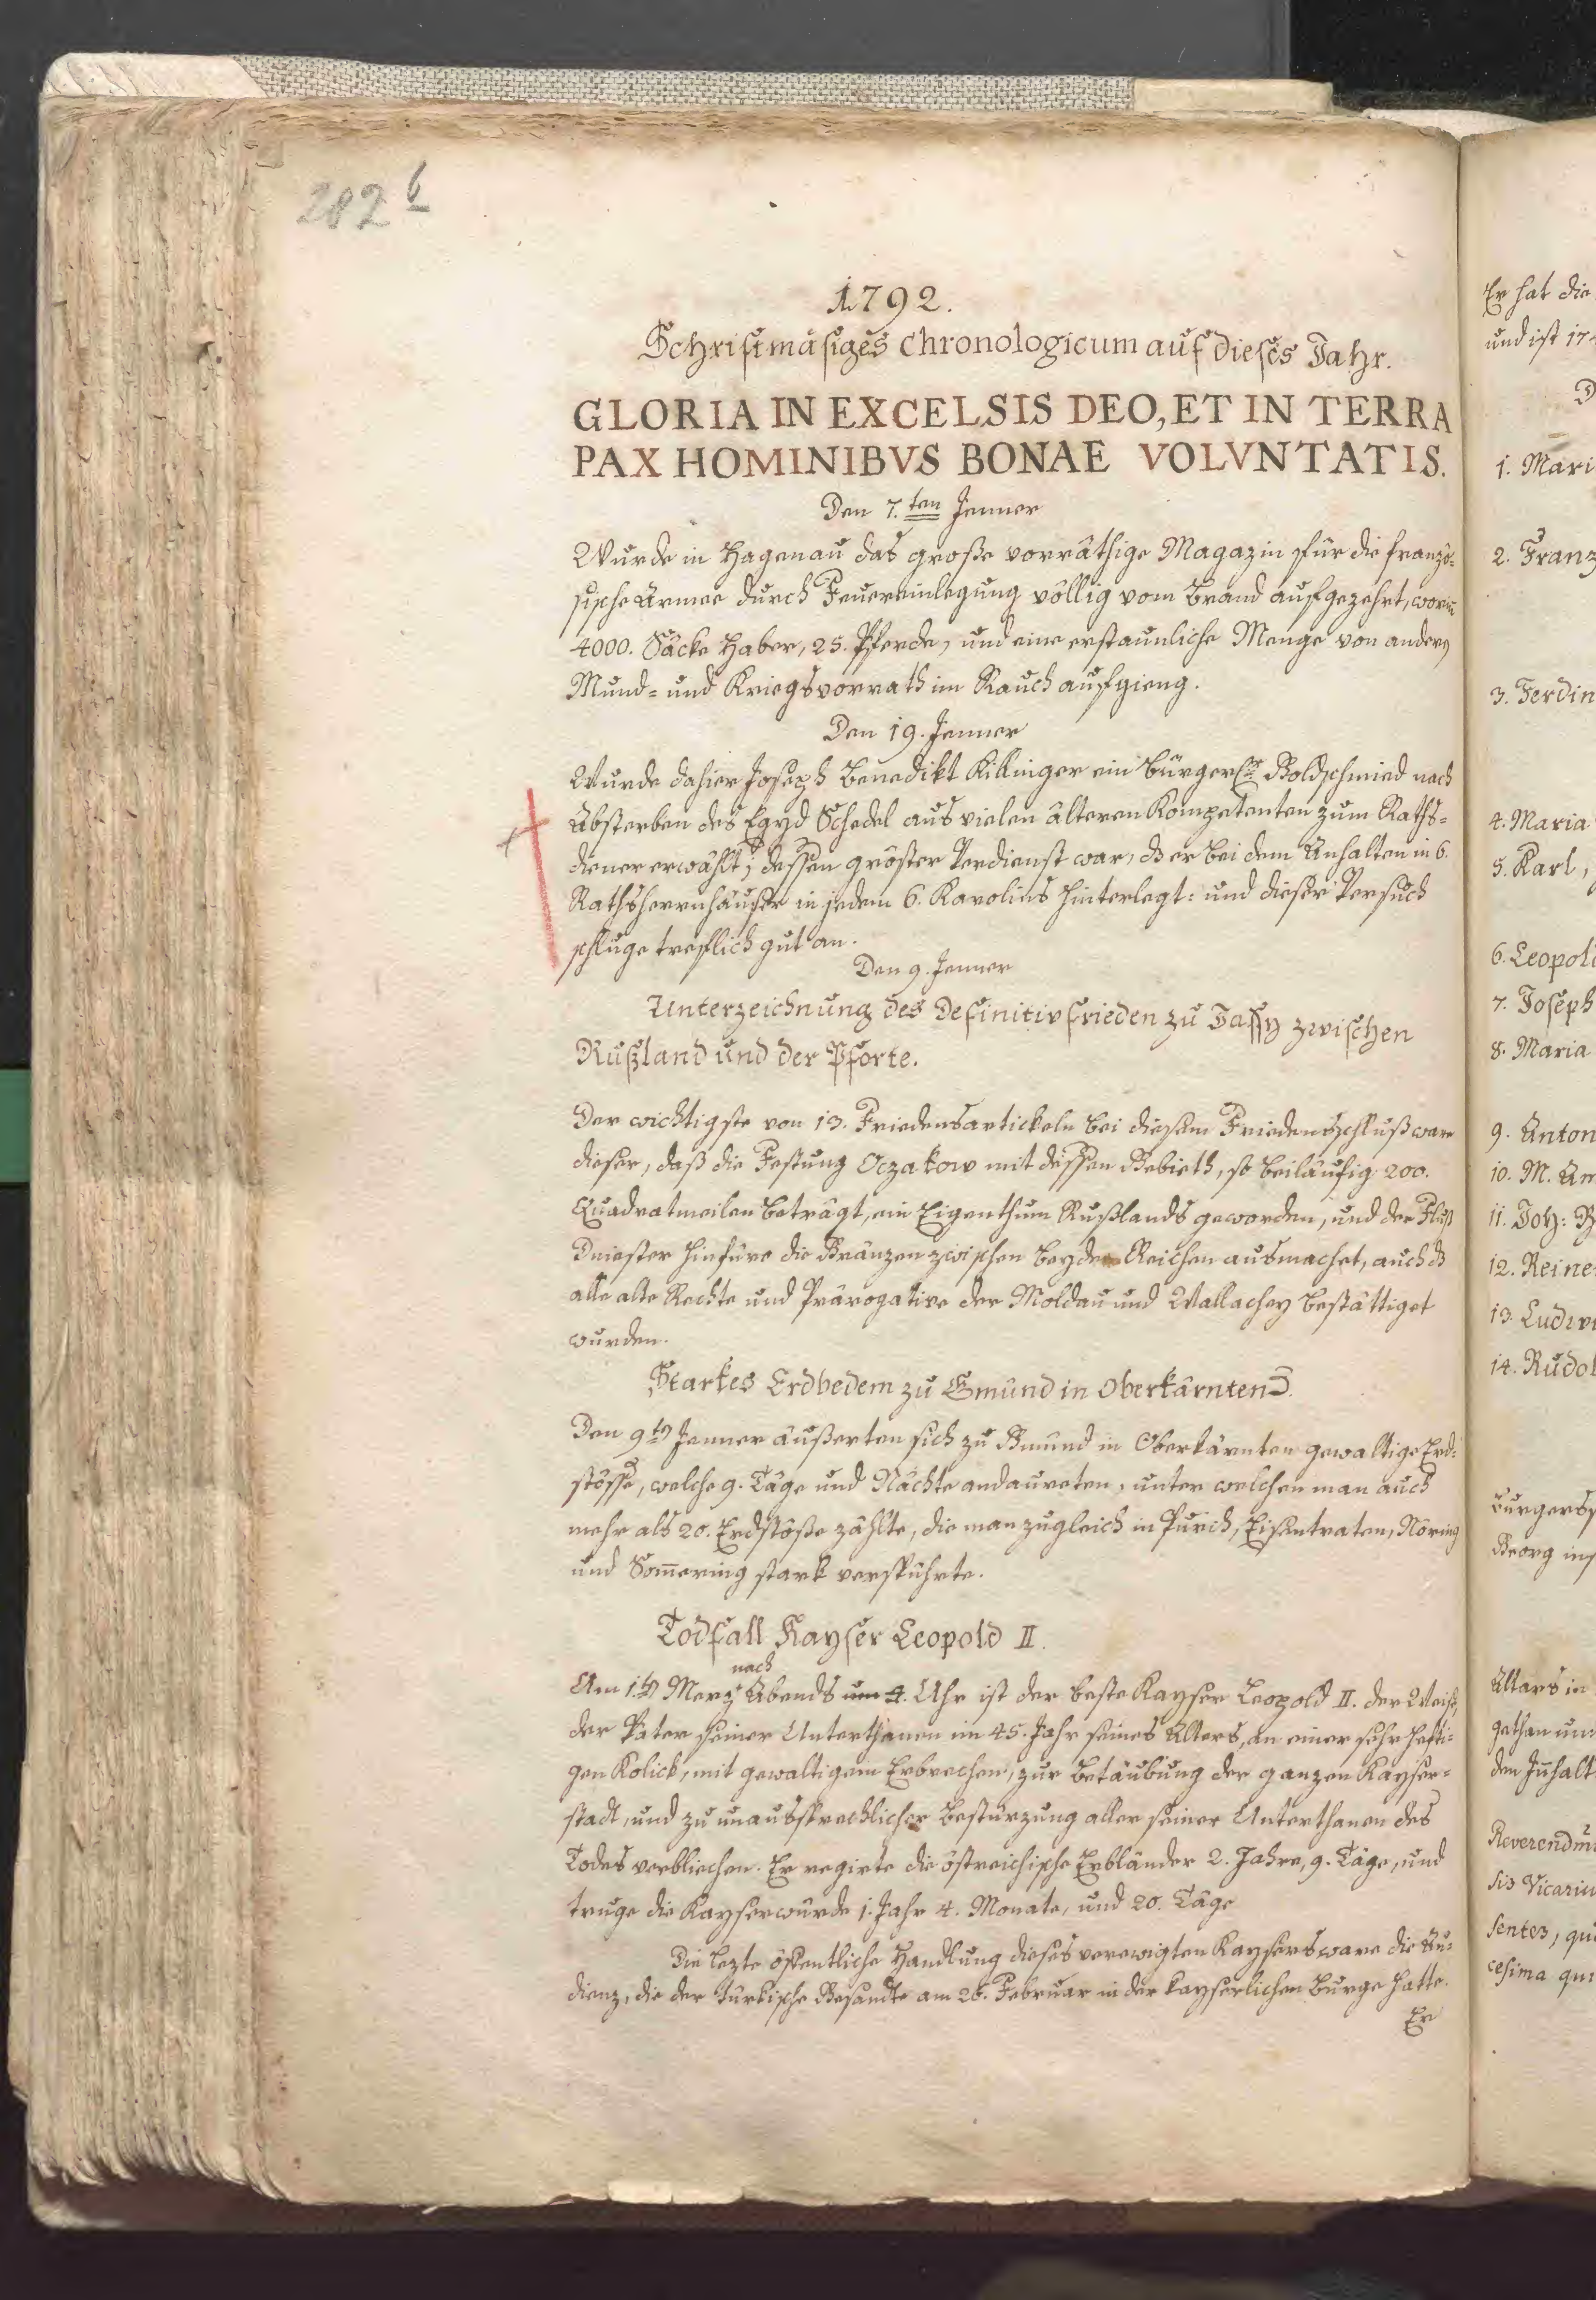 282 b
1792.
Schriftmäsiges Chronologicum auf dieses Jahr.
GLORIA IN EXCELSIS DEO, ET IN TERRA
PAX HOMINIBVS BONAE VOLVNTATIS.
Den 7.ten Jenner
Wurde in Hagenau das große vorräthige Magazin für die franzö-
sische Armee durch Feuereinlegung völlig vom Brand aufgezehrt, worin̄
4000. Säcke Haber, 25. Pferde, und eine erstaunliche Menge von andern
Mund- und Kriegsvorrath im Rauch aufgieng.
Den 19. Jenner
Wurde dahier Joseph Benedikt Killinger ein bürgerl. Goldschmied nach
Absterben des Egyd Schedel aus vielen älteren Kompetenten zum Raths-
diener erwählt; dessen gröster Verdienst war, dß er bei dem Anhalten in 6.
Rathsherrnhäuser in jedem 6. Karolins hinterlegt: und dieser Versuch
schluge treflich gut an.
Den 9. Jenner
Unterzeichnung des Definitivfrieden zu Jassy zwischen
Rußland und der Pforte.
Der wichtigste von 13. Friedensartickeln bei diesem Friedensschluß ware
dieser, daß die Festung Oczakow mit dessen Gebieth, so beiläufig 200.
Quadratmeilen beträgt, ein Eigenthum Rußlands geworden, und der Fluß
Dniester hinfüro die Gränzen zwischen beyden Reichen ausmachet, auch dß
alle alte Rechte und Prärogative der Moldau und Wallachey bestättiget
wurden.
Starkes Erdbedem zu Gmünd in Oberkärnten.
Den 9ten Jenner äußerten sich zu Gmünd in Oberkärnten gewaltige Erd-
stösse, welche 9. Täge und Nächte andaureten, unter welchen man auch
mehr als 20. Erdstöße zählte, die man zugleich in Purich, Eisentraten, Nöring
und Som̄ering stark verspührte.
Todfall Kayser Leopold II.
nach
Am 1.ten Merz Abends um 4. Uhr ist der beste Kayser Leopold II. der Weise,
der Vater seiner Unterthanen im 45. Jahr seines Alters, an einer sehr hefti-
gen Kolick, mit gewaltigem Erbrechen, zur Betäubung der ganzen Kayser-
stadt, und zu unaussprechlicher Bestürzung aller seiner Unterthanen des
Todes verbliechen. Er regirte die östreichische Erbländer 2. Jahre, 9. Täge, und
truge die Kayserwürde 1. Jahr 4. Monate, und 20. Täge
Die lezte öffentliche Handlung dieses verewigten Kaysers ware die Au-
dienz, die der türkische Gesandte am 26. Februar in der kayserlichen Burge hatte.
Er
Er hat die
und ist 17
D
1. Mari
2. Franz
3. Ferdin
4. Maria
5. Karl,
6. Leopold
7. Joseph
8. Maria
9. Anton
10. M. Am
11. Joh: B
12. Reine
13. Ludwi
14. Rudol
Burgers
Georg ins
Altars in
gethan un
den Jn̄halt
Reverendm
sis Vicariu
sentes, qu
cesima qui